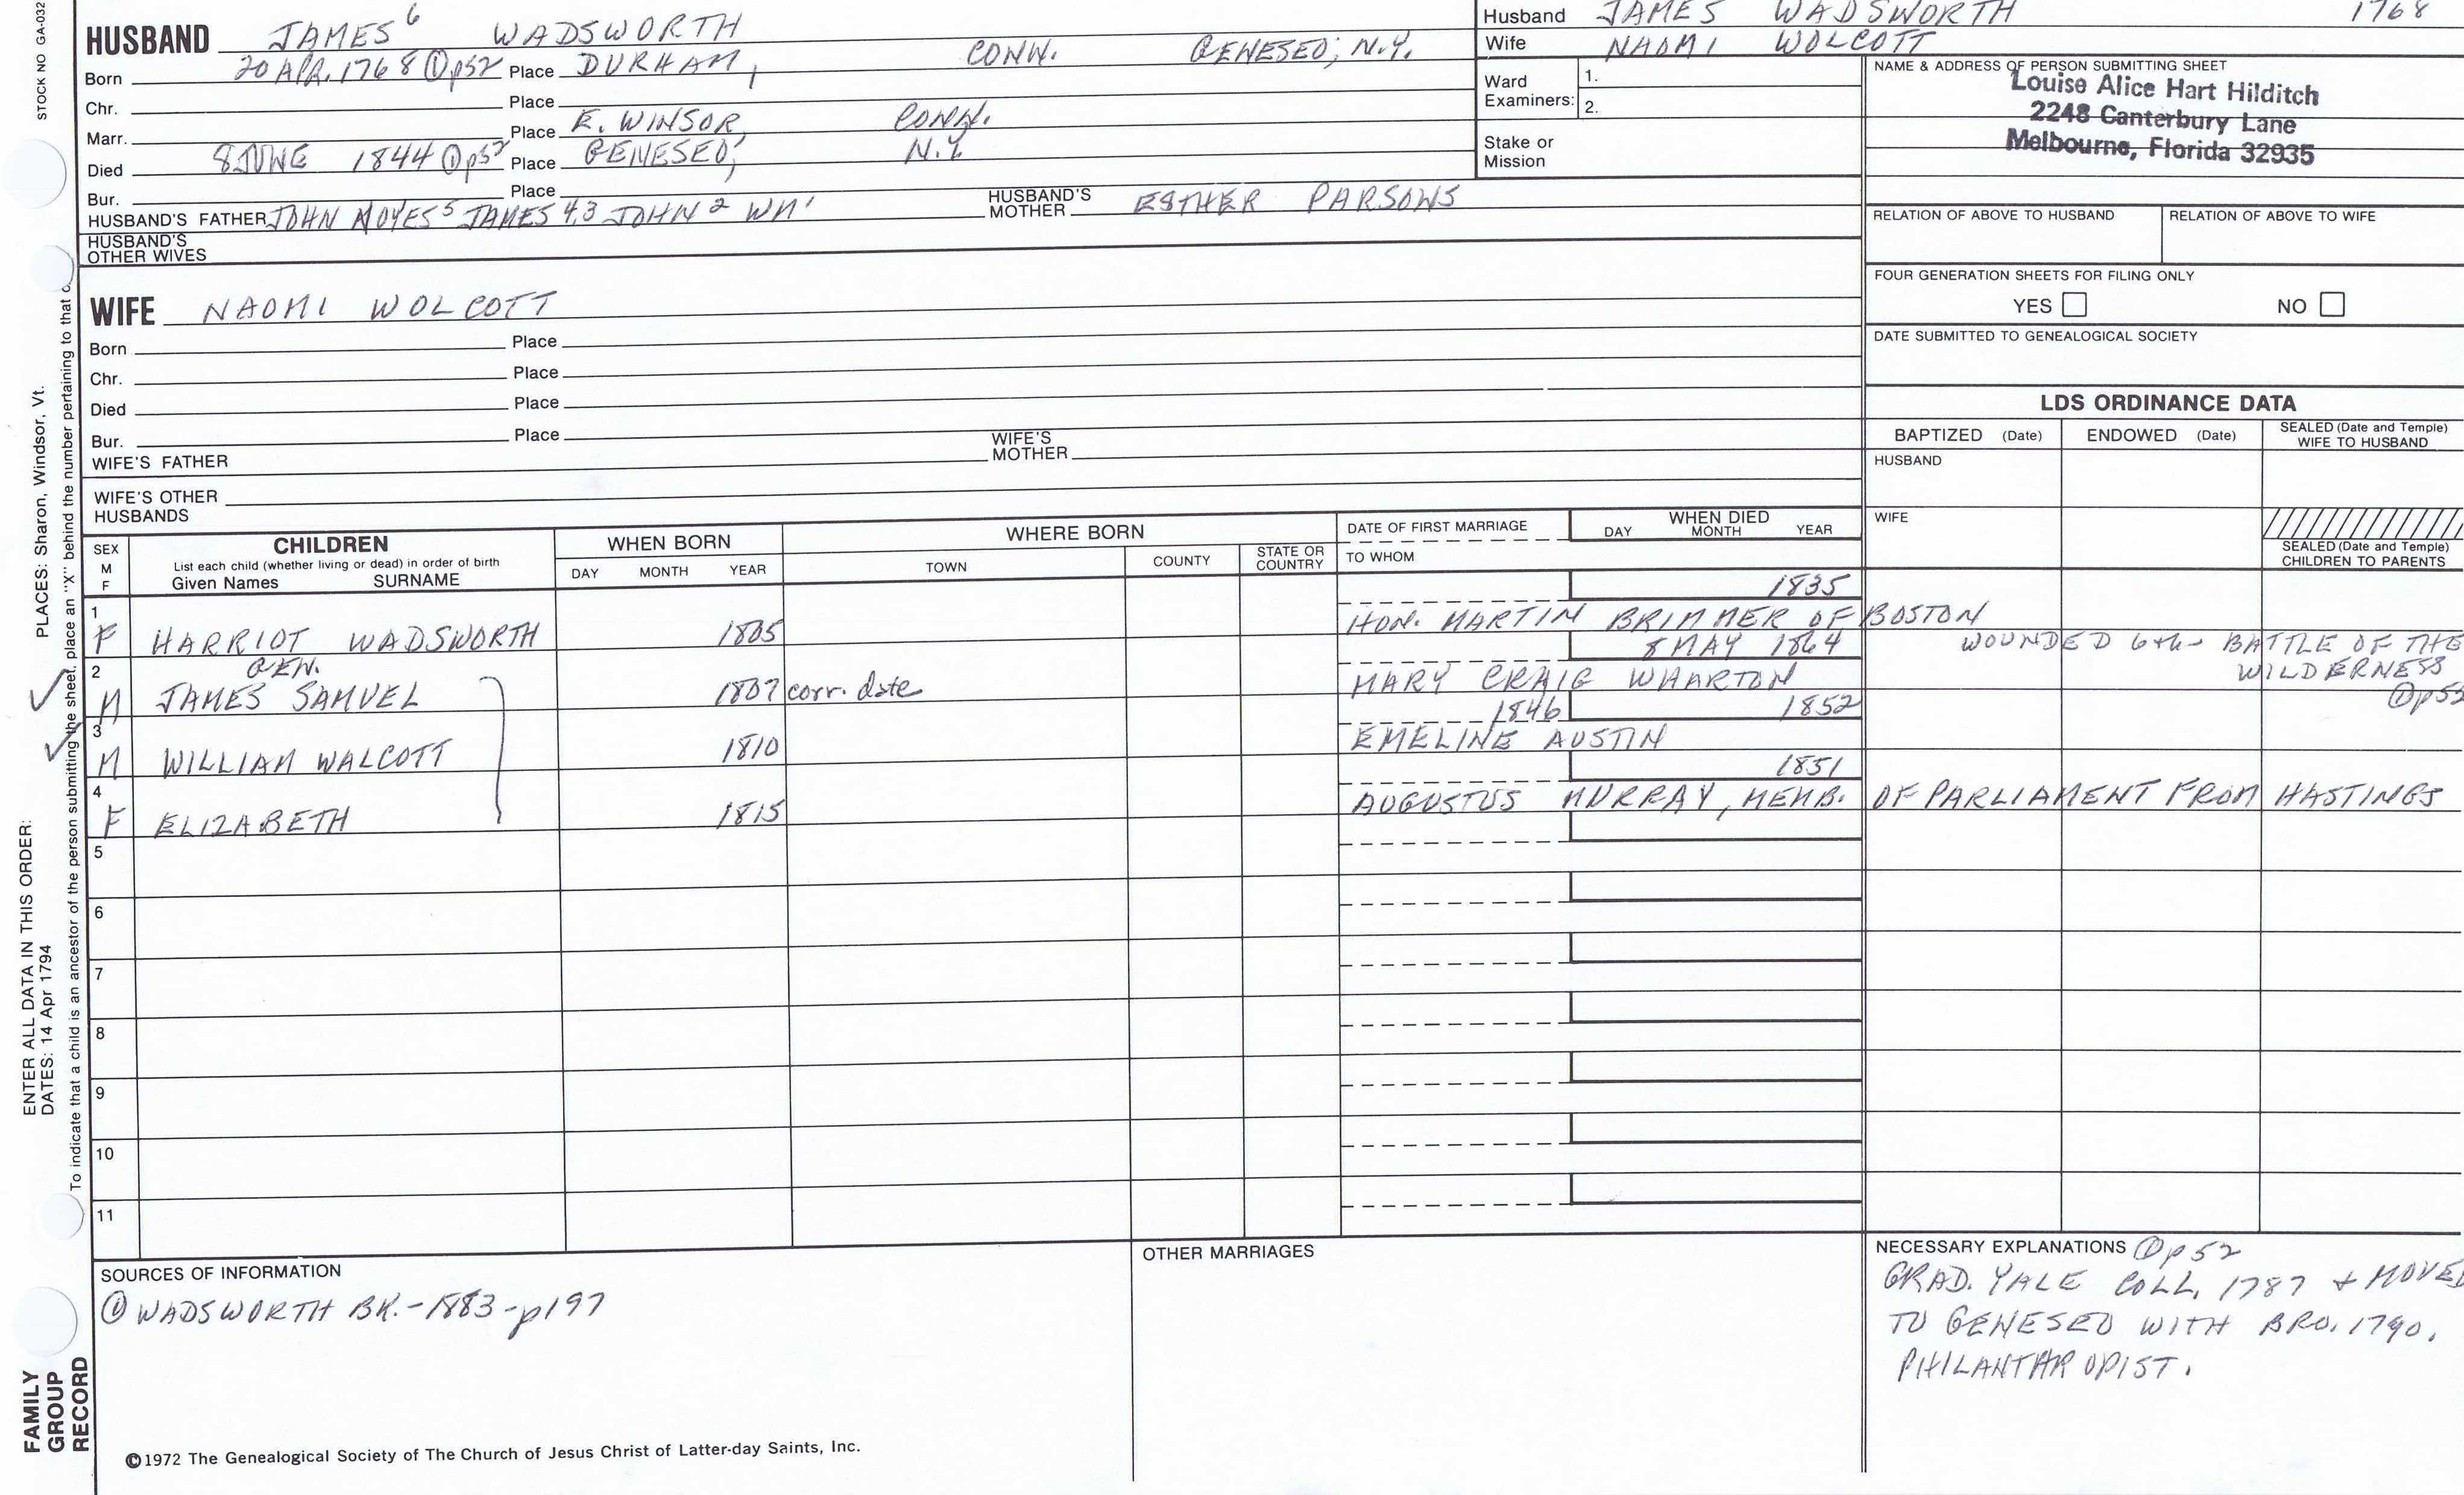 STOCK NO GA-032
HUSBAND JAMES 6 WADSWORTH
Born 20 APR. 1768 ① p52 Place DURHAM, CONN. GENESEO, N.Y.
Chr. Place
Marr. Place E. WINSOR, CONN.
Died 8 JUNE 1844 ① p52 Place GENESEO, N.Y.
Bur. Place
HUSBAND'S FATHER JOHN NOYES 5 JAMES 4,3 JOHN 2 WM 1 HUSBAND'S MOTHER ESTHER PARSONS
HUSBAND'S OTHER WIVES
Husband JAMES WADSWORTH 1768
Wife NAOMI WOLCOTT
Ward Examiners: 1.
2.
Stake or Mission
NAME & ADDRESS OF PERSON SUBMITTING SHEET
Louise Alice Hart Hilditch
2248 Canterbury Lane
Melbourne, Florida 32935
RELATION OF ABOVE TO HUSBAND RELATION OF ABOVE TO WIFE
FOUR GENERATION SHEETS FOR FILING ONLY
YES NO
DATE SUBMITTED TO GENEALOGICAL SOCIETY
WIFE NAOMI WOLCOTT
Born Place
Chr. Place
Died Place
Bur. Place
WIFE'S FATHER WIFE'S MOTHER
WIFE'S OTHER HUSBANDS
LDS ORDINANCE DATA
BAPTIZED (Date) ENDOWED (Date) SEALED (Date and Temple) WIFE TO HUSBAND
HUSBAND
WIFE
SEALED (Date and Temple) CHILDREN TO PARENTS
SEX M F
CHILDREN
List each child (whether living or dead) in order of birth
Given Names SURNAME
WHEN BORN
DAY MONTH YEAR
WHERE BORN
TOWN COUNTY STATE OR COUNTRY
DATE OF FIRST MARRIAGE
TO WHOM
WHEN DIED
DAY MONTH YEAR
1 1835
F HARRIOT WADSWORTH 1805 HON. MARTIN BRIMMER OF BOSTON
2 GEN. 8 MAY 1864 WOUNDED 6th - BATTLE OF THE WILDERNESS ① p52
M JAMES SAMUEL 1807 corr. date MARY CRAIG WHARTON
3 1846 1852
M WILLIAM WALCOTT 1810 EMELINE AUSTIN
4 1851
F ELIZABETH 1815 AUGUSTUS MURRAY, MEMB. OF PARLIAMENT FROM HASTINGS
5
6
7
8
9
10
11
SOURCES OF INFORMATION
① WADSWORTH BK. - 1883 - p197
OTHER MARRIAGES
NECESSARY EXPLANATIONS ① p52
GRAD. YALE COLL. 1787 + MOVED
TO GENESEO WITH BRO. 1790.
PHILANTHROPIST.
©1972 The Genealogical Society of The Church of Jesus Christ of Latter-day Saints, Inc.
ENTER ALL DATA IN THIS ORDER:
DATES: 14 Apr 1794 PLACES: Sharon, Windsor, Vt.
To indicate that a child is an ancestor of the person submitting the sheet, place an "X" behind the number pertaining to that
FAMILY
GROUP
RECORD